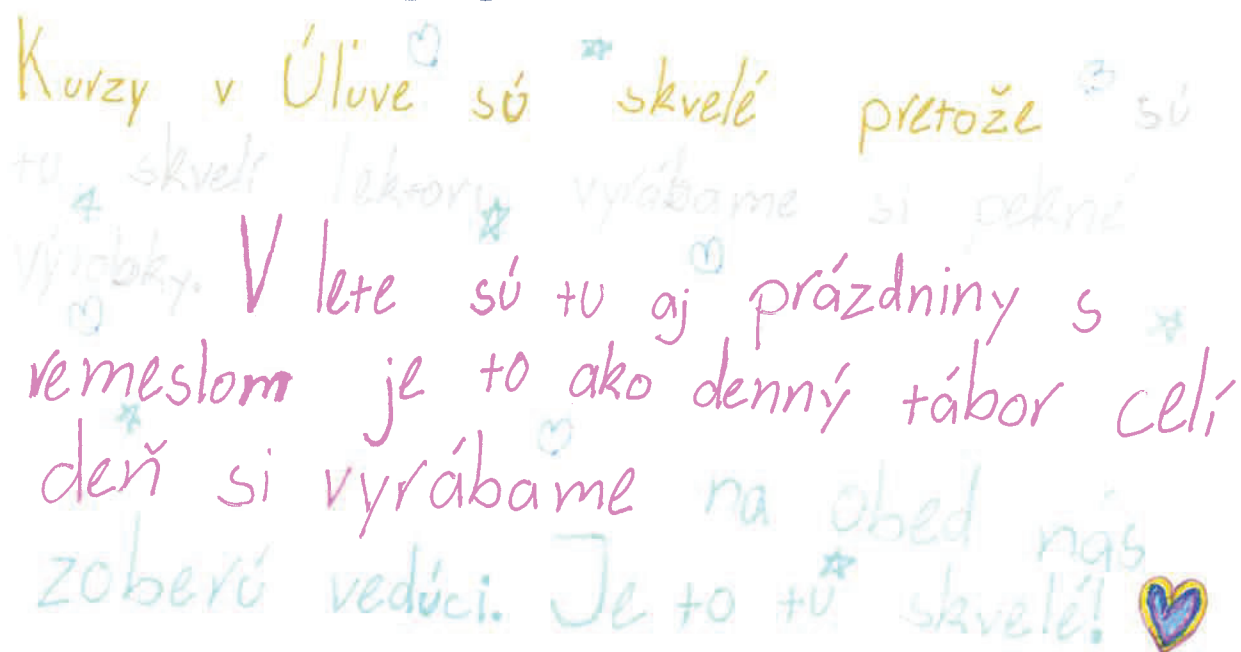 Kurzy v Úľuve sú skvelé pretože sú
tu skvelí lektory vyrábame si pekné
výrobky. V lete sú tu aj prázdniny s
remeslom je to ako denný tábor celí
deň si vyrábame na obed nás
zoberú vedúci. Je to tu skvelé!